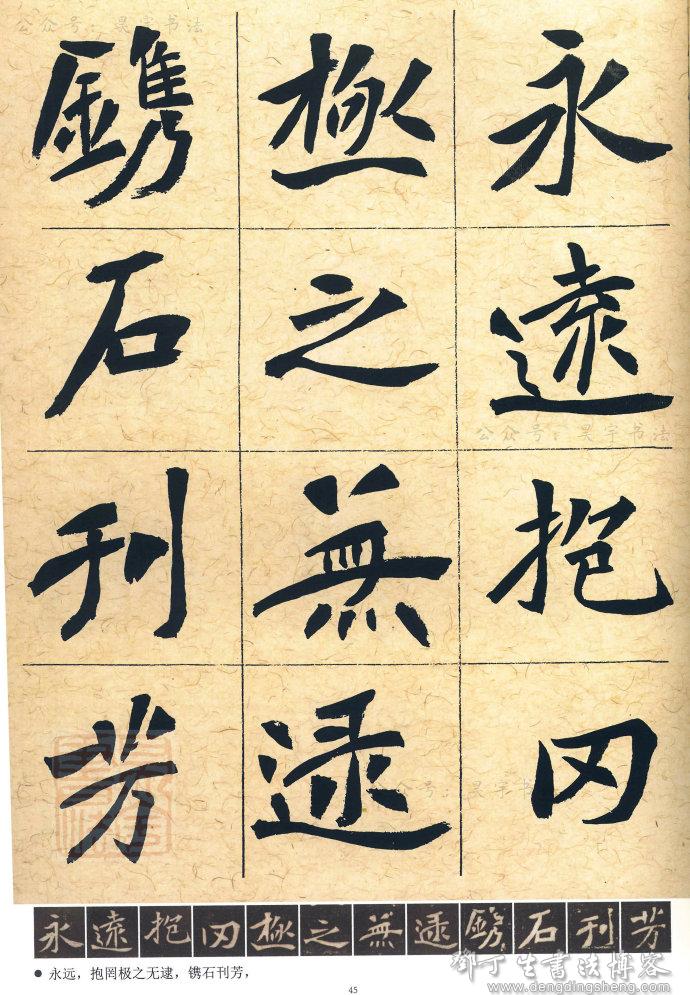 公众号：昊宇书法
永遠抱罔
極之無逮
鐫石刊芳
公众号：昊宇书法
公众号：昊宇书
永遠抱罔極之無逮鐫石刊芳
● 永远，抱罔极之无逮，镌石刊芳，
45
邓丁生书法博客
www.dengdingsheng.com